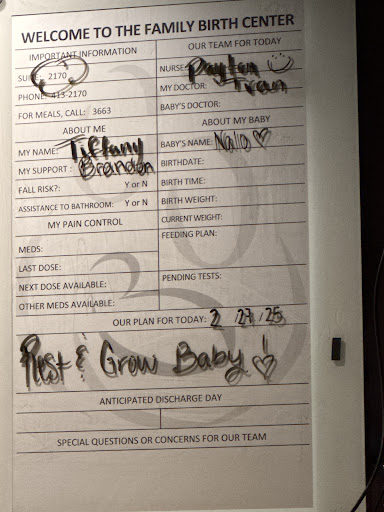 WELCOME TO THE FAMILY BIRTH CENTER
IMPORTANT INFORMATION
SUITE: 2170
PHONE: 413-2170
FOR MEALS, CALL: 3663
ABOUT ME
MY NAME: Tiffany
MY SUPPORT: Brandon
FALL RISK?: Y or N
ASSISTANCE TO BATHROOM: Y or N
MY PAIN CONTROL
MEDS:
LAST DOSE:
NEXT DOSE AVAILABLE:
OTHER MEDS AVAILABLE:
OUR TEAM FOR TODAY
NURSE: Payten
MY DOCTOR: Tran
BABY'S DOCTOR:
ABOUT MY BABY
BABY'S NAME: Nala
BIRTHDATE:
BIRTH TIME:
BIRTH WEIGHT:
CURRENT WEIGHT:
FEEDING PLAN:
PENDING TESTS:
OUR PLAN FOR TODAY: 2/27/25
Rest & Grow Baby!
ANTICIPATED DISCHARGE DAY
SPECIAL QUESTIONS OR CONCERNS FOR OUR TEAM